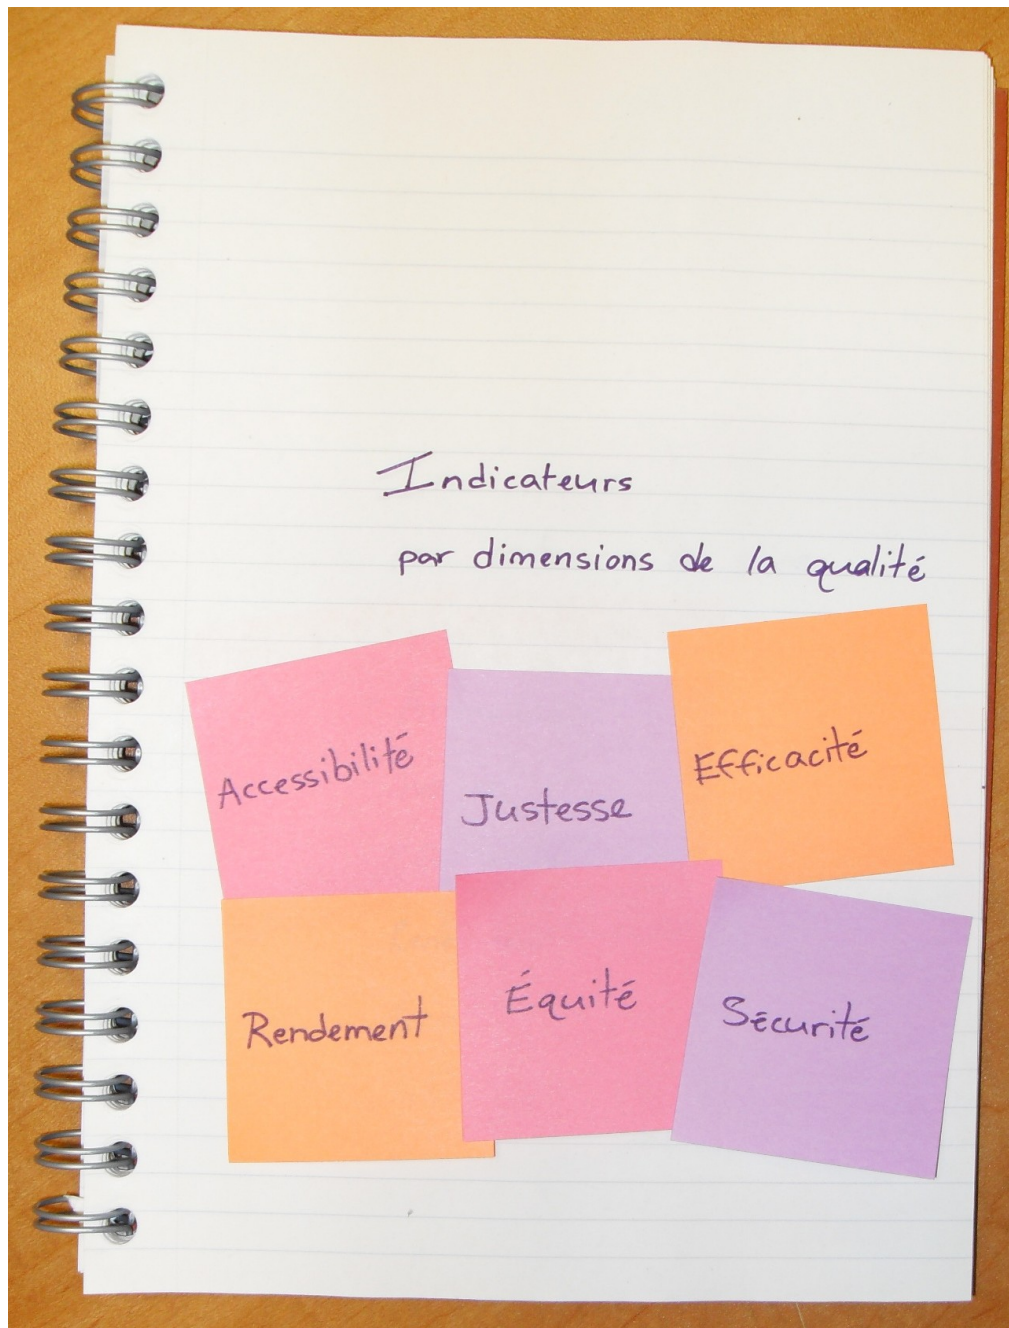 Indicateurs
par dimensions de la qualité
Accessibilité
Justesse
Efficacité
Rendement
Équité
Sécurité